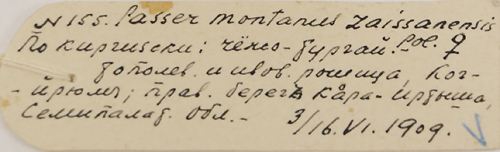 N 155. Passer montanus zaissanensis
По киргизски: чёмо-бургай. Pol. ♀
тополев. и ивов. рощица, Ког-
-йрюмъ; прав. берегъ Кара-Иртыша,
Семипалат. обл. - 3/16. VI. 1909.